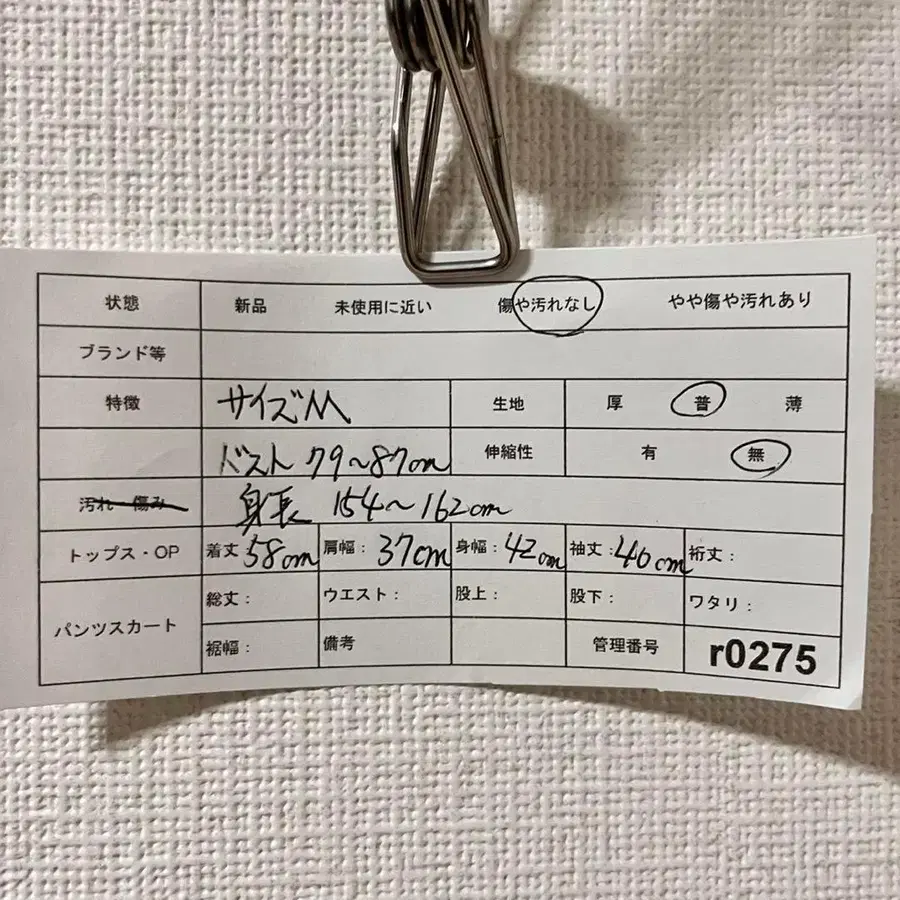 状態 新品 未使用に近い 傷や汚れなし やや傷や汚れあり
ブランド等
特徴 サイズM 生地 厚 普 薄
バスト 79～87cm 伸縮性 有 無
汚れ・傷み 身長 154～162cm
トップス・OP 着丈 58cm 肩幅： 37cm 身幅： 42cm 袖丈： 46cm 裄丈：
パンツスカート 総丈： ウエスト： 股上： 股下： ワタリ：
裾幅： 備考 管理番号 r0275